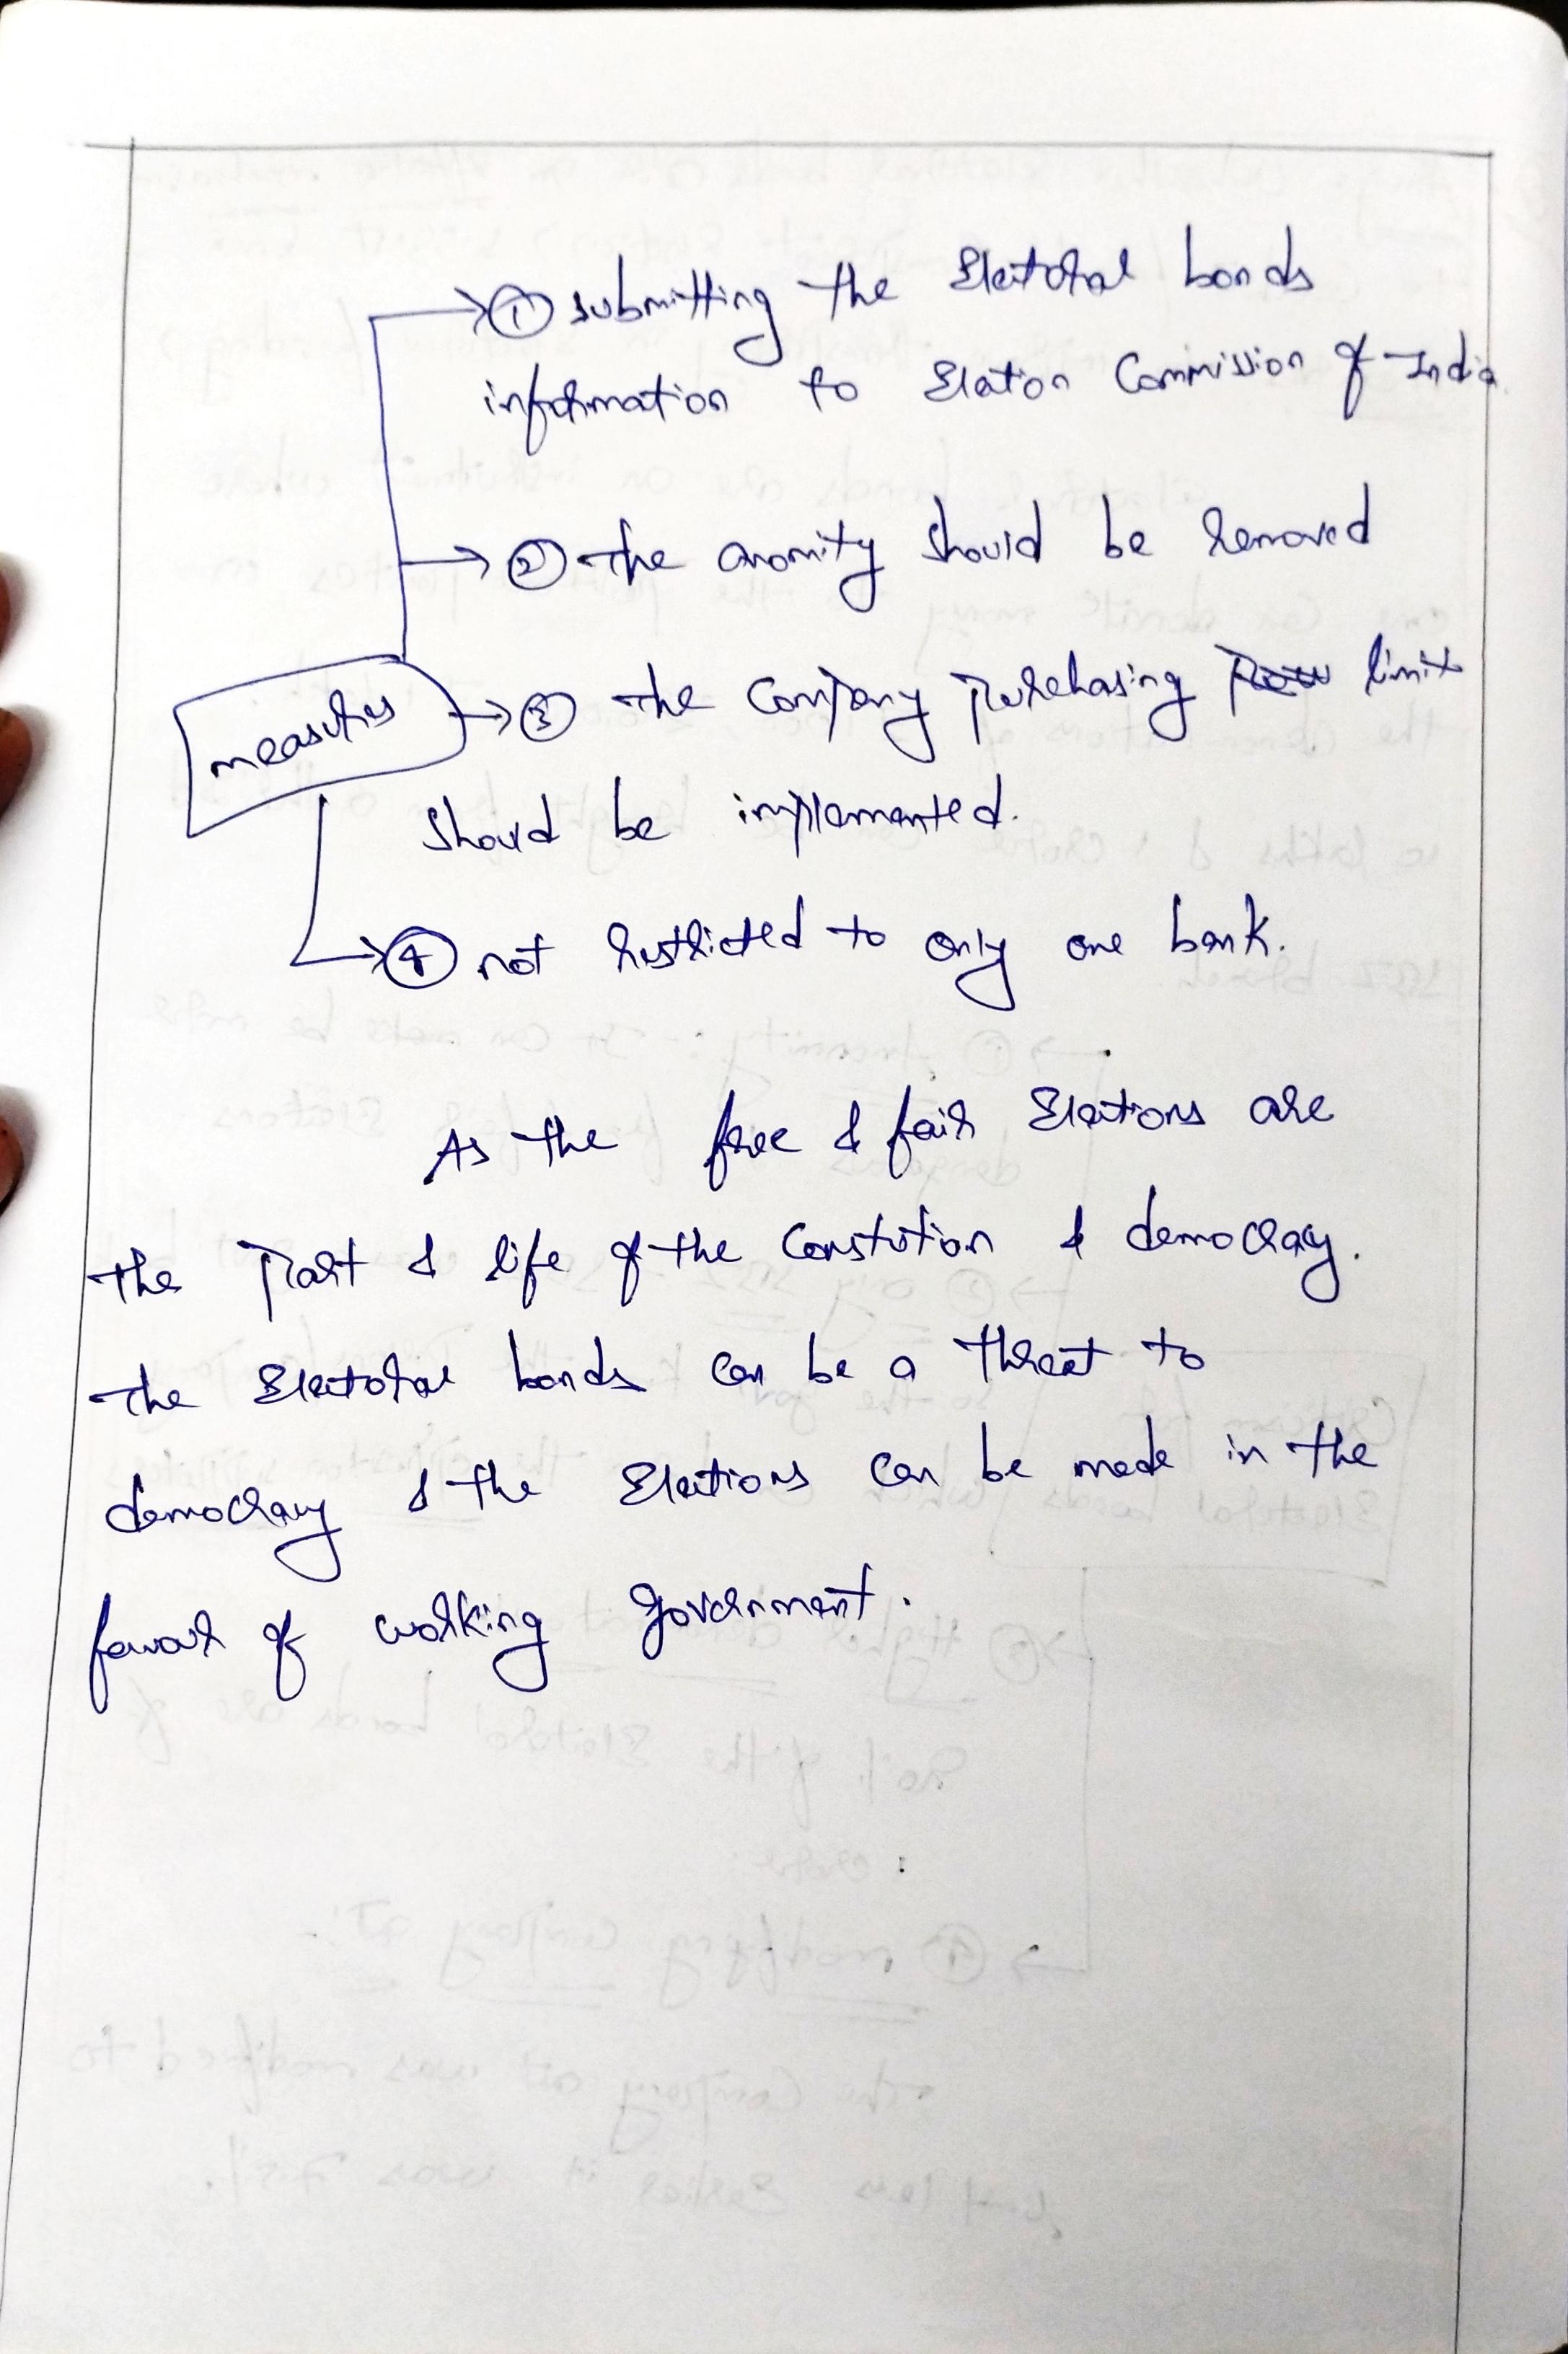 ① submitting the Electoral bonds
information to Elation Commission of India
② the anomity should be removed
measures
③ the Company purchasing limit
should be implemented.
④ not restricted to only one bank.
As the free & fair Elections are
the Part & life of the Constution & democracy.
the Electoral bonds can be a threat to
democracy & the Elections can be made in the
favour of working government.